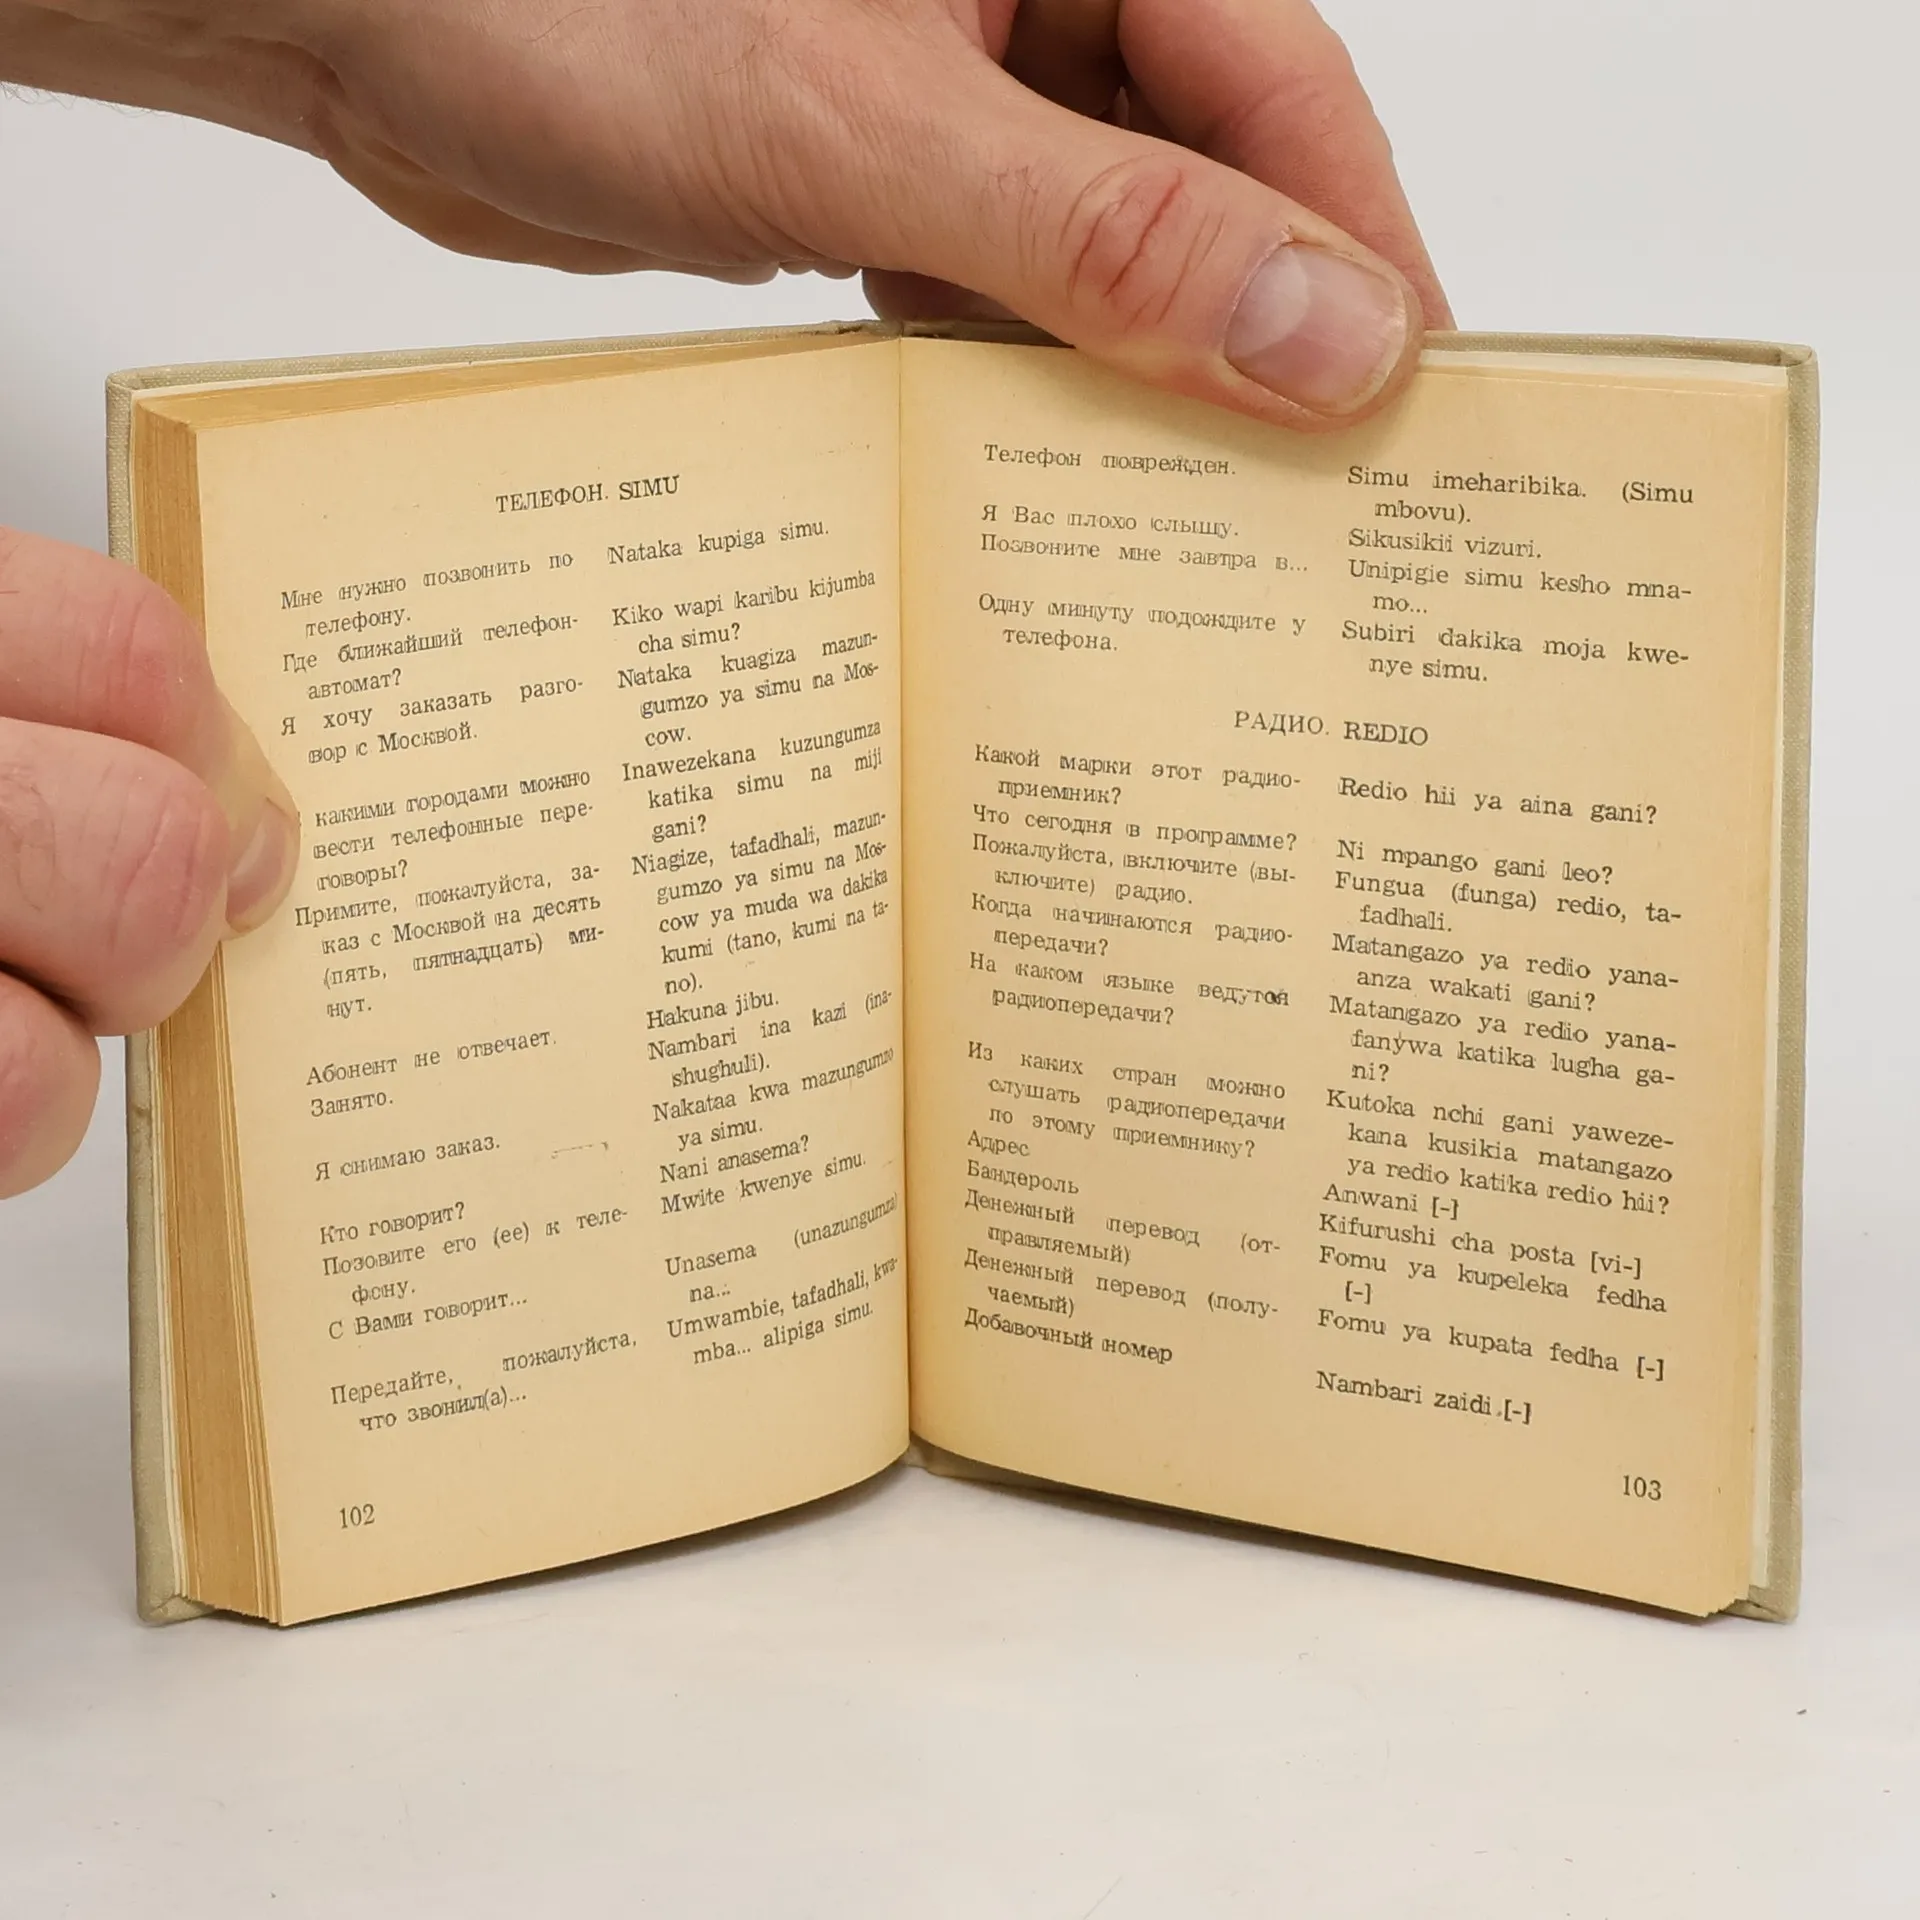 ТЕЛЕФОН. SIMU
Мне нужно позвонить по
телефону.
Где ближайший телефон-
автомат?
Я хочу заказать разго-
вор с Москвой.
какими городами можно
вести телефонные пере-
говоры?
Примите, пожалуйста, за-
каз с Москвой на десять
(пять, пятнадцать) ми-
нут.
Абонент не отвечает.
Занято.
Я снимаю заказ.
Кто говорит?
Позовите его (ее) к теле-
фону.
С Вами говорит...
Передайте, пожалуйста,
что звонил(а)...
Nataka kupiga simu.
Kiko wapi karibu kijumba
cha simu?
Nataka kuagiza mazun-
gumzo ya simu na Mos-
cow.
Inawezekana kuzungumza
katika simu na miji
gani?
Niagize, tafadhali, mazun-
gumzo ya simu na Mos-
cow ya muda wa dakika
kumi (tano, kumi na ta-
no).
Hakuna jibu.
Nambari ina kazi (ina-
shughuli).
Nakataa kwa mazungumzo
ya simu.
Nani anasema?
Mwite kwenye simu.
Unasema (unazungumza)
na...
Umwambie, tafadhali, kwa-
mba... alipiga simu.
102
Телефон поврежден.
Я Вас плохо слышу.
Позвоните мне завтра в...
Одну минуту подождите у
телефона.
Simu imeharibika. (Simu
mbovu).
Sikusikii vizuri.
Unipigie simu kesho mna-
mo...
Subiri dakika moja kwe-
nye simu.
РАДИО. REDIO
Какой марки этот радио-
приемник?
Что сегодня в программе?
Пожалуйста, включите (вы-
ключите) радио.
Когда начинаются радио-
передачи?
На каком языке ведутся
радиопередачи?
Из каких стран можно
слушать радиопередачи
по этому приемнику?
Адрес
Бандероль
Денежный перевод (от-
правляемый)
Денежный перевод (полу-
чаемый)
Добавочный номер
Redio hii ya aina gani?
Ni mpango gani leo?
Fungua (funga) redio, ta-
fadhali.
Matangazo ya redio yana-
anza wakati gani?
Matangazo ya redio yana-
fanywa katika lugha ga-
ni?
Kutoka nchi gani yaweze-
kana kusikia matangazo
ya redio katika redio hii?
Anwani [-]
Kifurushi cha posta [vi-]
Fomu ya kupeleka fedha
[-]
Fomu ya kupata fedha [-]
Nambari zaidi [-]
103